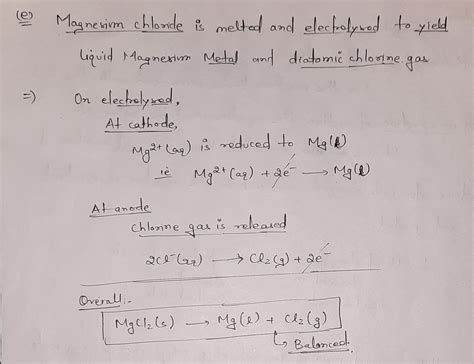 (e) Magnesium chloride is melted and electrolysed to yield
liquid Magnesium Metal and diatomic chlorine gas
⇒) On electrolysed,
At cathode,
Mg²⁺(aq) is reduced to Mg(l)
ie Mg²⁺(aq) + 2e⁻ → Mg(l)
At anode
Chlorine gas is released
2Cl⁻(aq) → Cl₂(g) + 2e⁻
Overall:-
MgCl₂(s) → Mg(l) + Cl₂(g)
↳ Balanced.